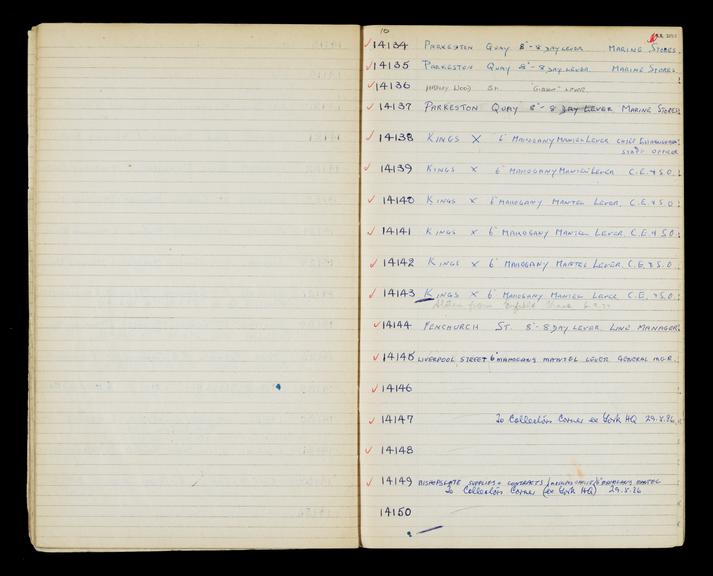 10
14134 PARKESTON QUAY 8"- 8 DAY LEVER MARINE STORES.
14135 PARKESTON QUAY 8"- 8 DAY LEVER MARINE STORES.
14136 HADLEY WOOD SH. "GIBSON" LEVER.
14137 PARKESTON QUAY 8"- 8 DAY LEVER MARINE STORES
14138 KINGS X 6" MAHOGANY MANTEL LEVER CHIEF
OFFICER
14139 KINGS X 6" MAHOGANY MANTEL LEVER C.E. & S.O.
14140 KINGS X 6" MAHOGANY MANTEL LEVER. C.E. & S.O.
14141 KINGS X 6" MAHOGANY MANTEL LEVER. C.E. & S.O.
14142 KINGS X 6" MAHOGANY MANTEL LEVER. C.E. & S.O.
14143 KINGS X 6" MAHOGANY MANTEL LEVER C.E. & S.O.
Stolen from
14144 FENCHURCH ST. 8"- 8 DAY LEVER. LINE MANAGER.
14145 LIVERPOOL STREET 6" MAHOGANY MANTEL LEVER GENERAL MGR.
14146
14147 To Collectors Corner ex York HQ 29.8.86
14148
14149 BISHOPSGATE SUPPLIES & CONTRACTS 6" MAHOGANY MANTEL
To Collectors Corner (ex York HQ) 29.8.86
14150